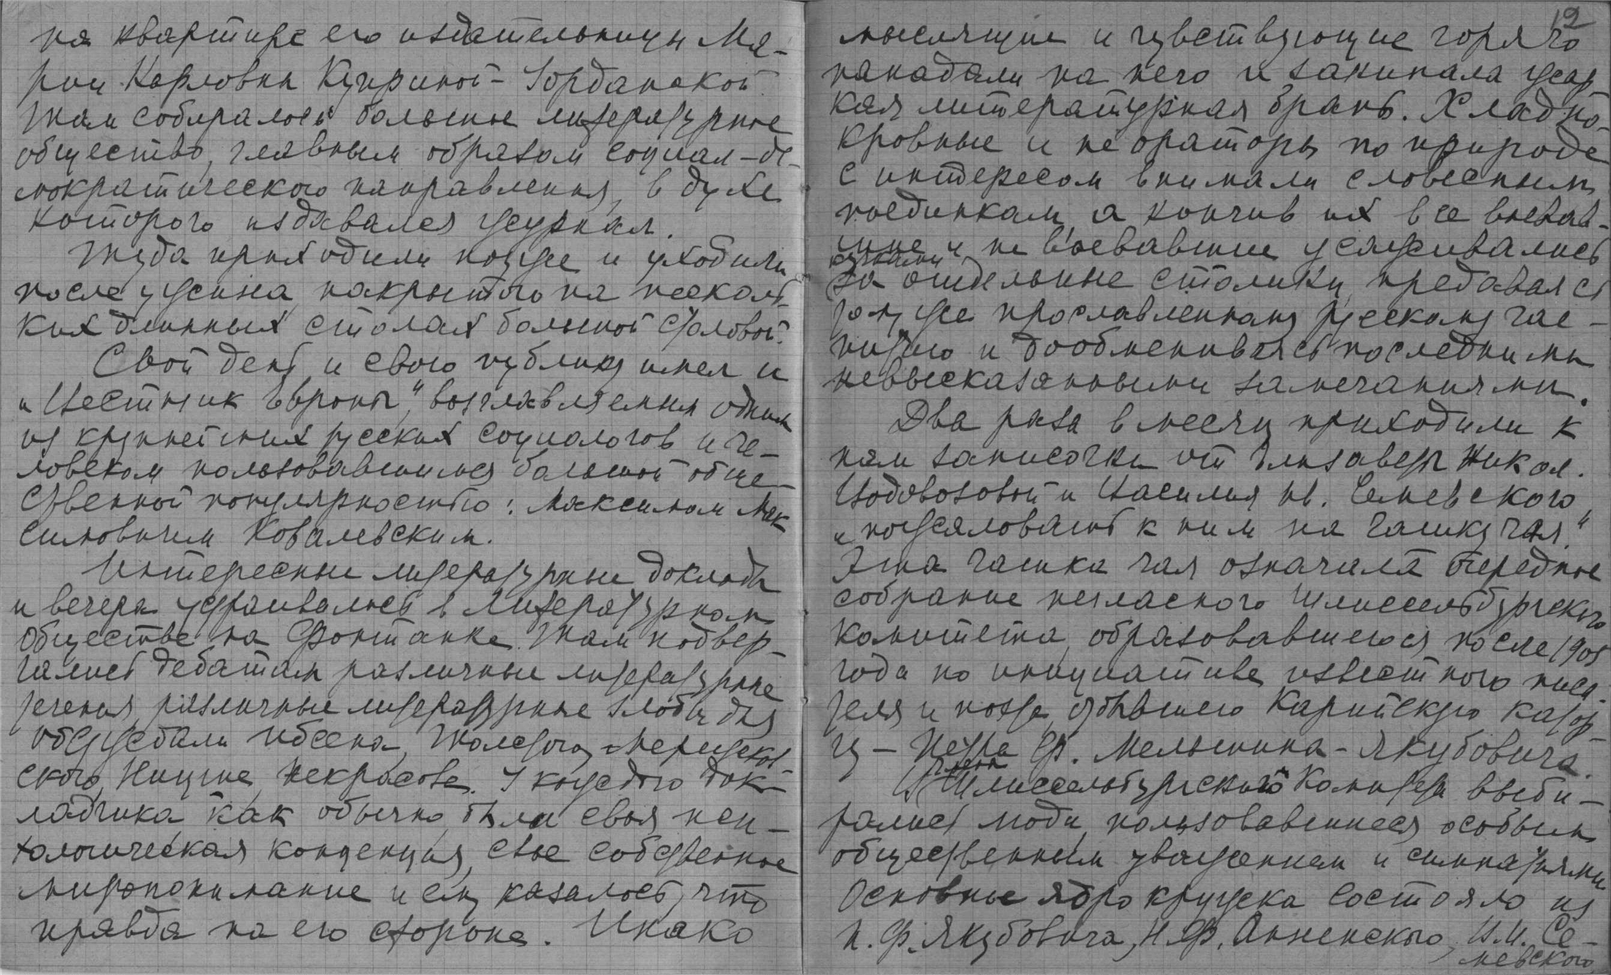 на квартире его издательницы Ма-
рии Карловны Куприной-Иорданской.
Там собиралось большое литературное
общество, главным образом социал-де-
мократического направления, в духе
которого издавался журнал.
Туда приходили позже и уходили
после ужина, накрытого на несколь-
ких длинных столах большой столовой.
Свой день и свою публику имел и
„Вестник Европы", возглавляемый одним
из крупнейших русских социологов и че-
ловеком пользовавшимся большой обще-
ственной популярностью: Максимом Мак
симовичем Ковалевским.
Интересные литературные доклады
и вечера устраивались в Литературном
обществе на Фонтанке. Там подвер-
гались дебатам различные литературные
течения, различные литературные злобы дня
обсуждали Ибсена, Толстого, Мережков-
ского, Ницше, Некрасова. У каждого док-
ладчика как обычно, были своя пси-
хологическая концепция, свое собственное
миропонимание и ему казалось, что
правда на его стороне. Инако
12
мыслящие и чувствующие горячо
нападали на него и закипала жар
кая литературная брань. Хладно-
кровные и не ораторы по природе
с интересом внимали словесным
поединкам, а кончив их все воевав-
шие и не воевавшие усаживались
за отдельные столики, предаваясь
тому же прославленному русскому чае-
питию и дообмениваясь последними
невысказанными замечаниями.
Два раза в месяц приходили к
нам записочки от Елизаветы Никол.
Водовозовой и Василия Ив. Семевского
„пожаловать к ним на чашку чая."
Эта чашка чая означала очередное
собрание негласного Шлиссельбургского
Комитета, образовавшегося после 1905
года по инициативе известного писа-
теля и поэта, отбывшего Карийскую катор
гу – Петра Ф. Мельшина-Якубовича.
В члены Шлиссельбургского Комитета выби-
рались люди, пользовавшиеся особым
общественным уважением и симпатиями
Основное ядро кружка состояло из
П. Ф. Якубовича, Н. Ф. Анненского, В. И. Се-
мевского